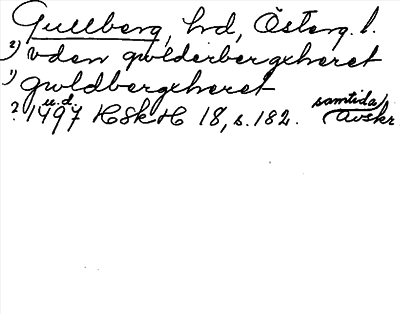 Gullberg, hd, Österg. l.
2) vden gwlderbergxheret
1) gwldbergxheret
? 1497 u.d. HSkH 18, s. 182. samtida Avskr.